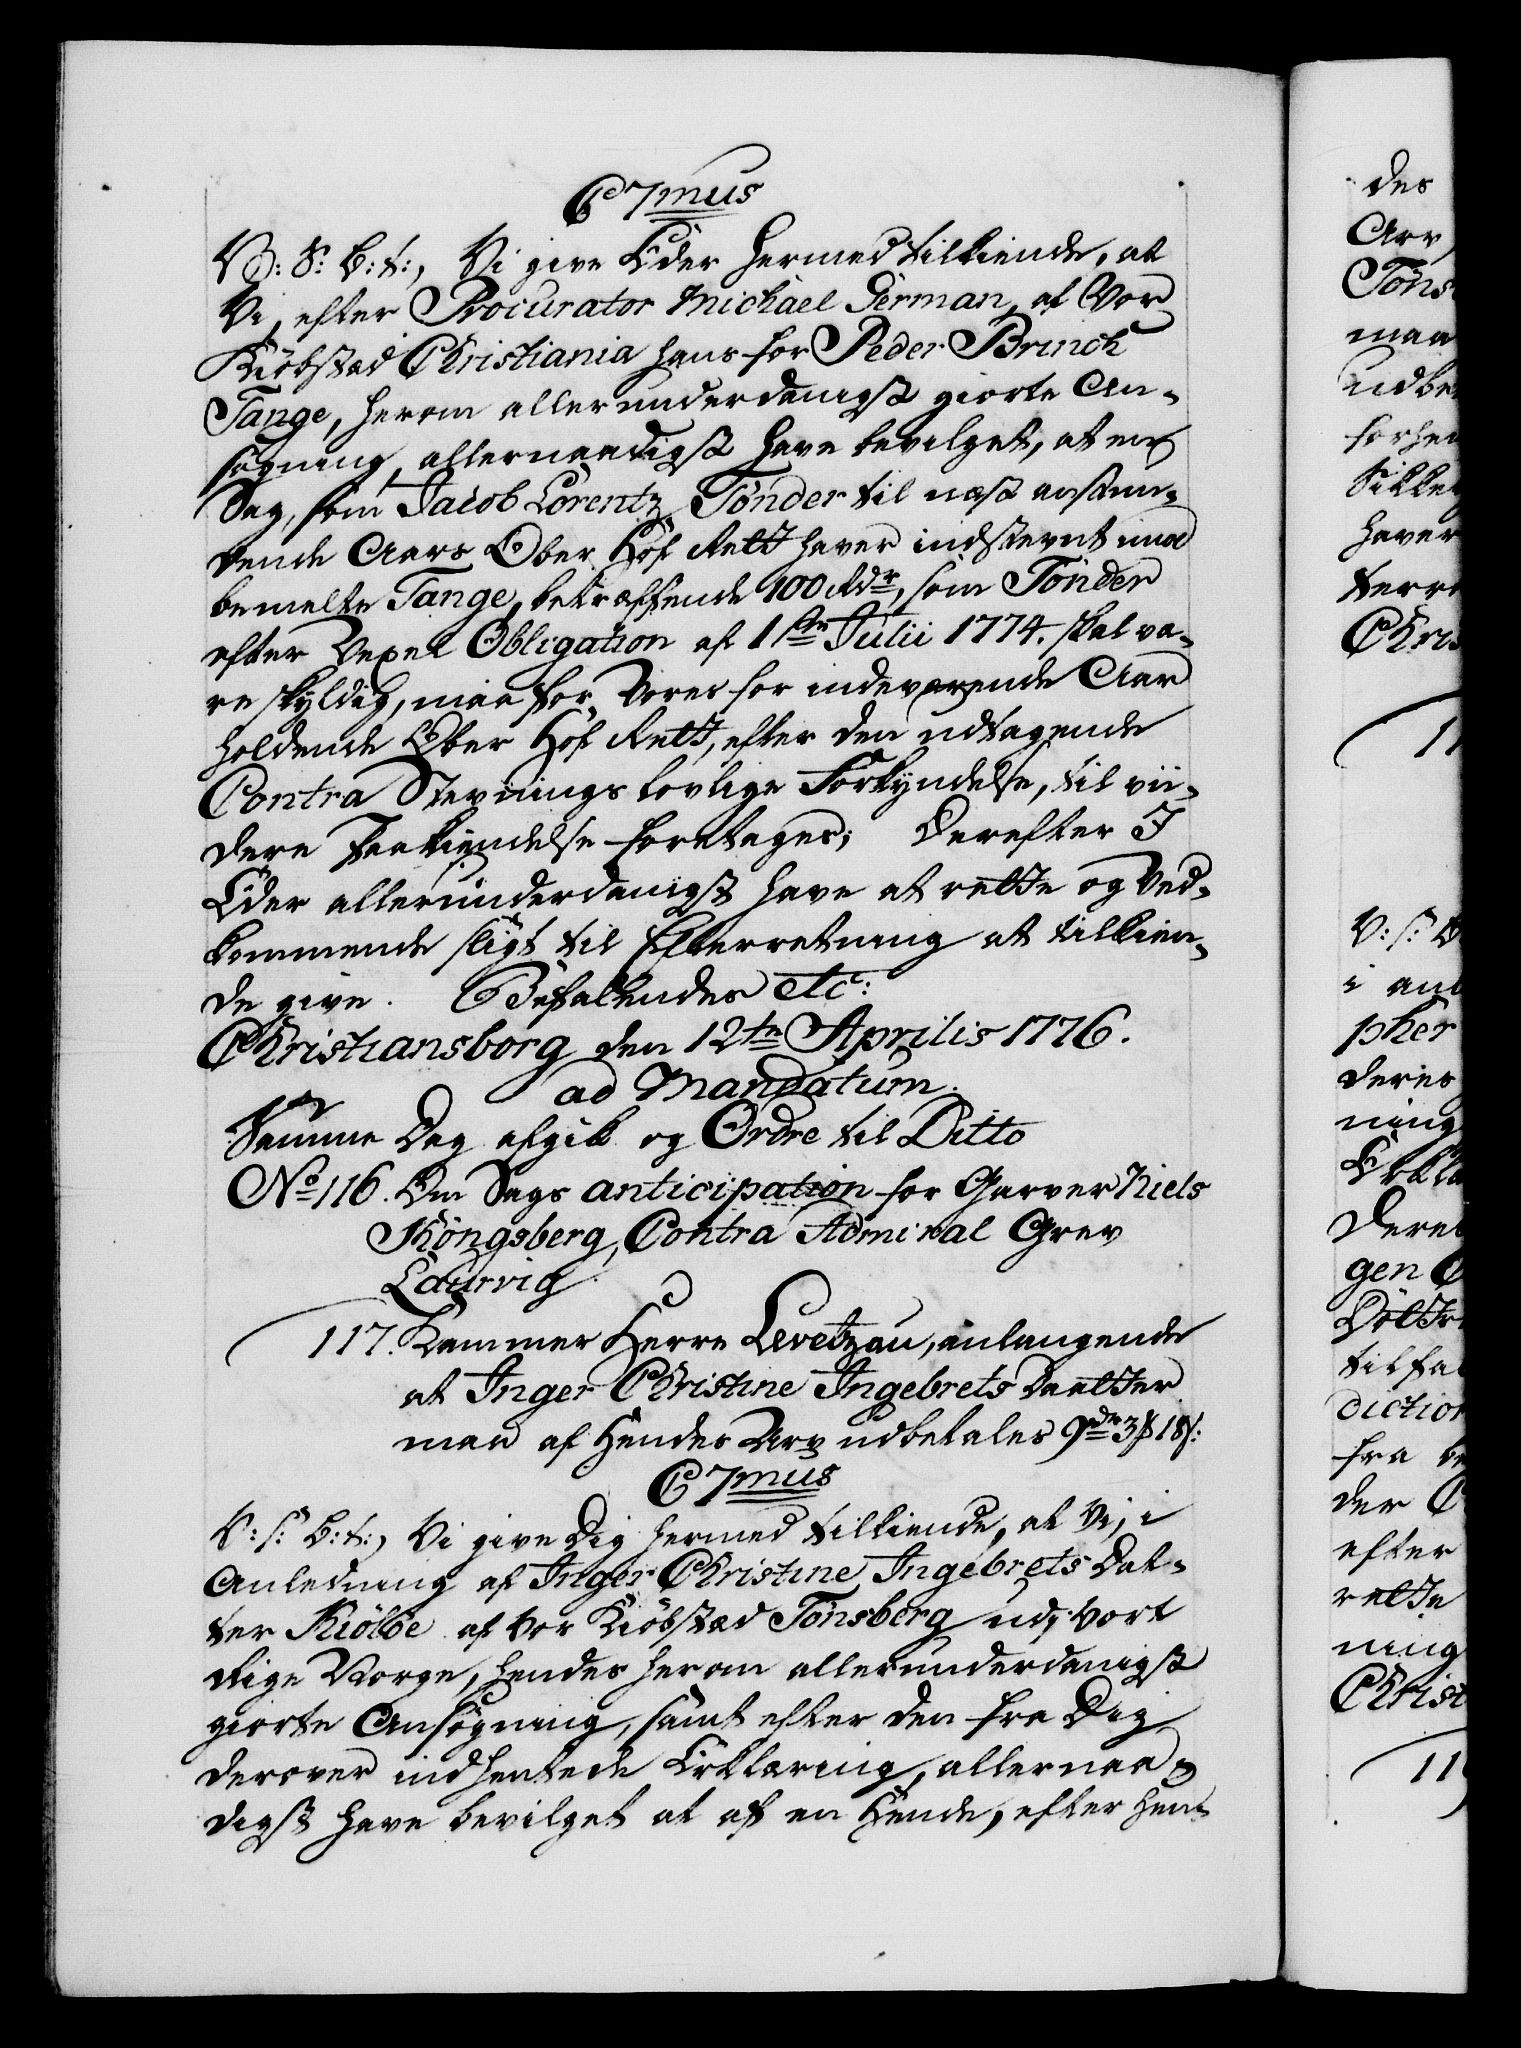 C7mus
V: S: B: t:, Vi give Eder hermed tilkiende, at
Vi, efter Procurator Michael German, af Vor
Kiöbstæd Christiania hans for Peder Brinch
Tange, herom allerunderdanigst giorte An-
søgning, allernaadigst have bevilget, at en
Sag, som Jacob Lorentz Tønder til næst anstun-
dende Aars Ober Hof Rett haver indstevnt imod
bemelte Tange, betræffende 100 Rdr, som Tønder
efter Vexel Obligation af 1ste Julii 1774. skal væ-
re skyldig, maa for Vores for indeværende Aar
holdende Ober Hof Rett, efter den udtagende
Contra Stevnings lovlige Forkyndelse, til vii-
dere Paakiendelse foretages; Derefter I
Eder allerunderdanigst have at rette og Ved-
kommende sligt til Efterretning at tilkien-
de give. Befalendes etc:
Christiansborg den 12te Aprilis 1776.
ad Mandatum.
Samme Dag afgik og Ordre til Ditto
No 116. Om Sags anticipation for Garver Niels
Kongsberg, Contra Admiral Grev
Laurvig.
117. Kammer Herre Levetzau, anlangende
at Inger Christine Ingebrets Daatter
maa af Hendes Arv udbetales 9rdr 3 ß 18 s:
C7mus
V: S: B: t:, Vi give Dig hermed tilkiende, at Vi, i
Anledning af Inger Christine Ingebrets Dat-
ter Kiølbe af Vor Kiöbstæd Tønsberg udi Vort
Rige Norge, hendes herom allerunderdanigst
giorte Ansøgning, samt efter den fra Dig
derover indhentede Erklæring, allernaa-
digst have bevilget at af en Hende, efter hen-
des
Arv,
maa
haver
i an
pher
deres
ning
gen
diction
fra
der
efter
rette
ning